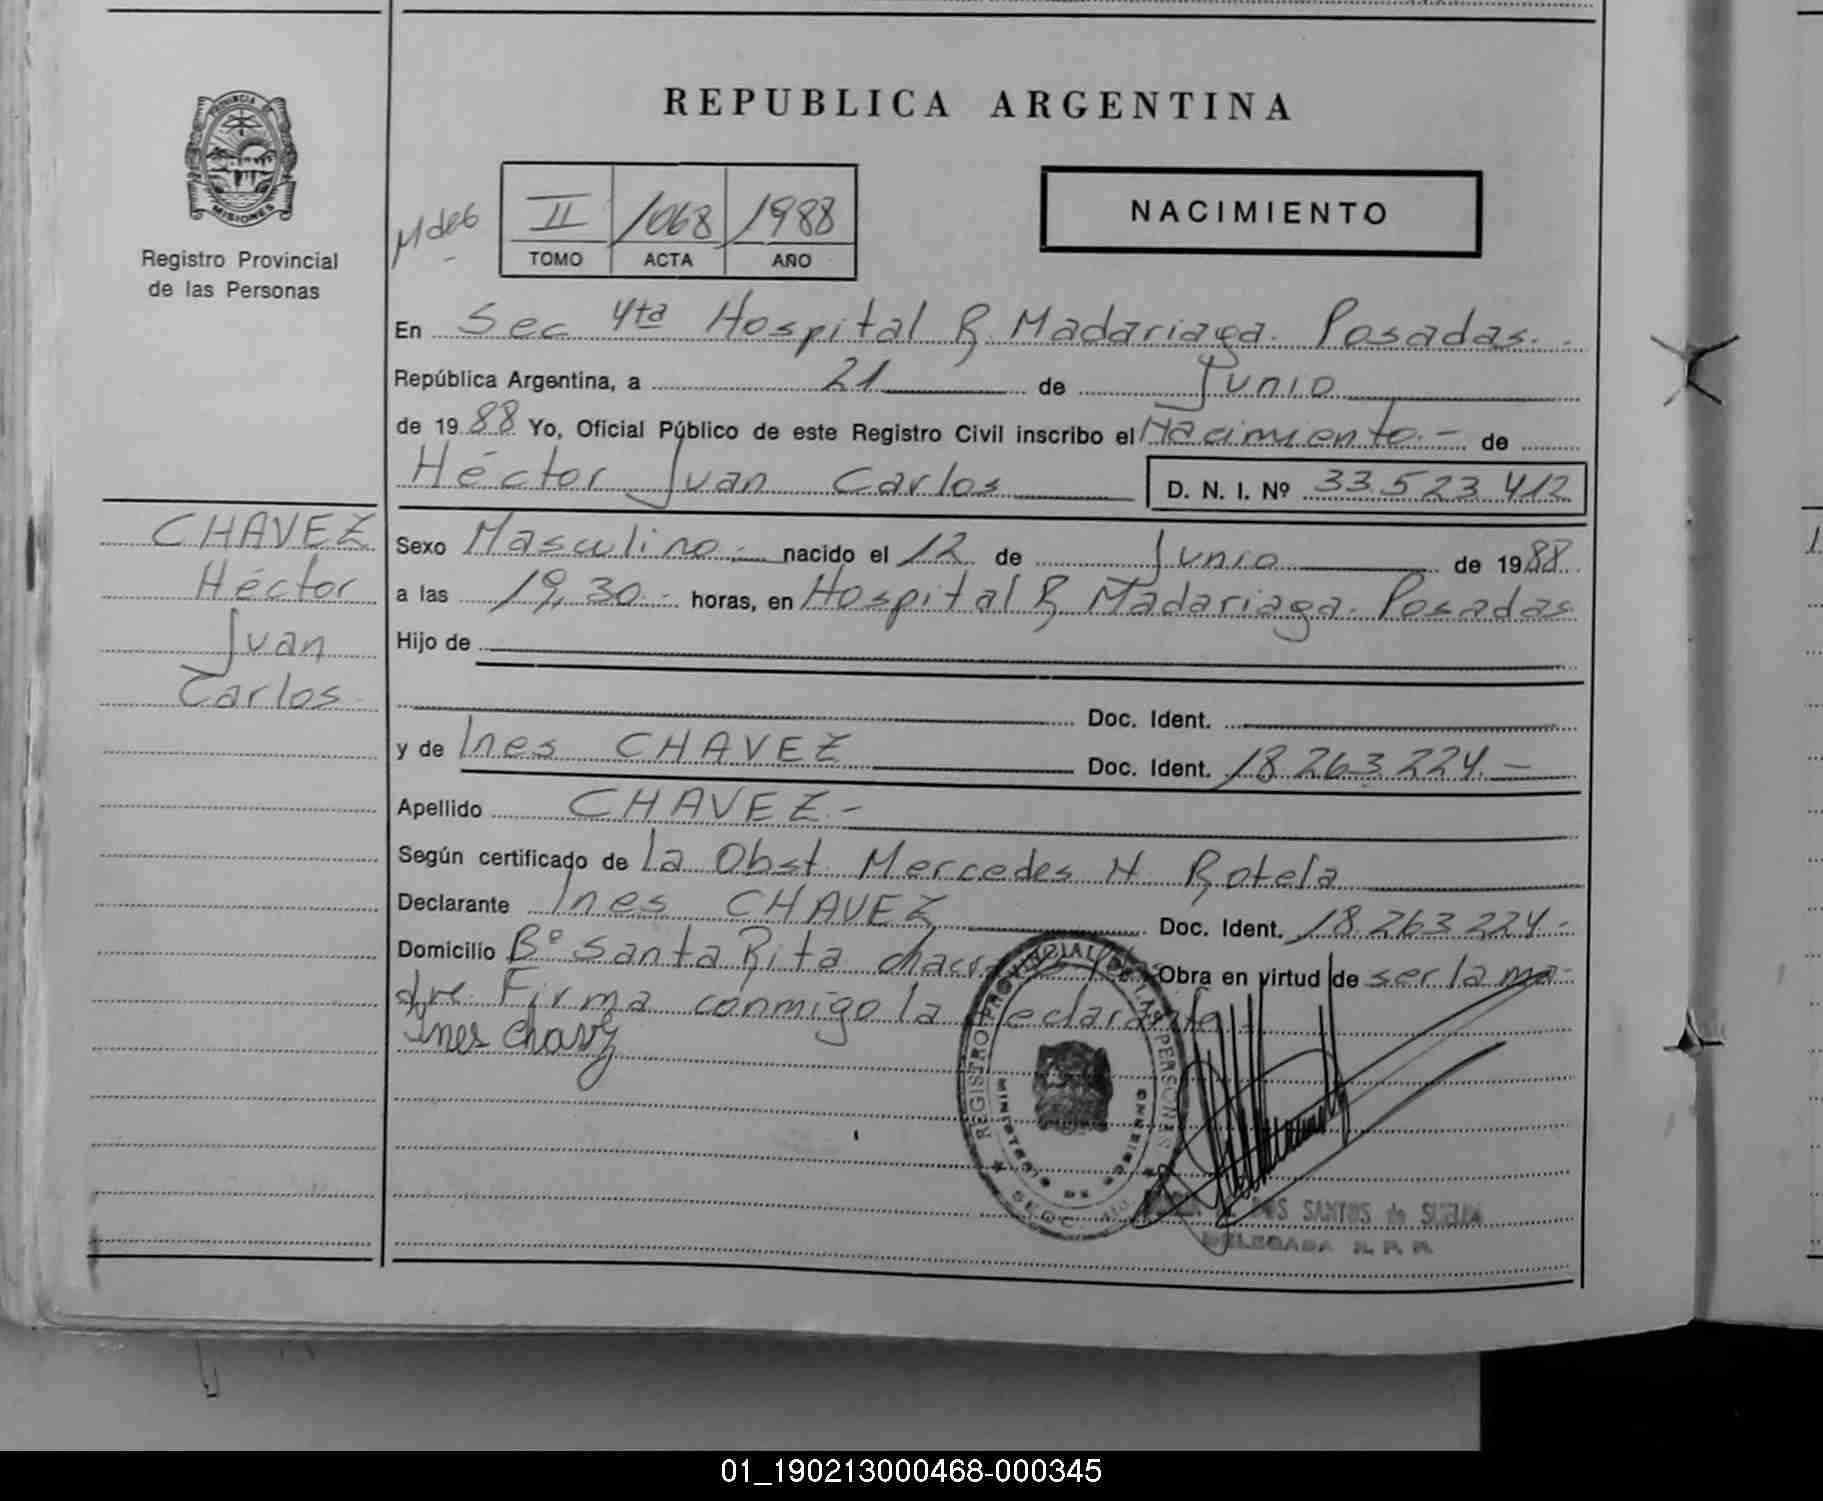 REPUBLICA ARGENTINA
PROVINCIA DE
MISIONES
Registro Provincial
de las Personas
II 1068 1988
TOMO ACTA AÑO
NACIMIENTO
En Sec 4ta Hospital R. Madariaga. Posadas.
República Argentina, a 21 de Junio
de 1988 Yo, Oficial Público de este Registro Civil inscribo el Nacimiento.- de
Héctor Juan Carlos D. N. I. Nº 33.523.412
CHAVEZ
Héctor
Juan
Carlos
Sexo Masculino.- nacido el 12 de Junio de 1988.
a las 19,30.- horas, en Hospital R. Madariaga. Posadas
Hijo de
Doc. Ident.
y de Ines CHAVEZ Doc. Ident. 18.263.224.-
Apellido CHAVEZ.-
Según certificado de la Obst. Mercedes H. Rotela
Declarante Ines CHAVEZ Doc. Ident. 18.263.224.-
Domicilio Bº Santa Rita chacra Obra en virtud de ser la ma-
dre. Firma conmigo la declarante.
Ines Chavez
REGISTRO PROVINCIAL DE LAS PERSONAS
MINISTERIO DE GOBIERNO
SANTOS de
DELEGADA R. P. P.
01_190213000468-000345